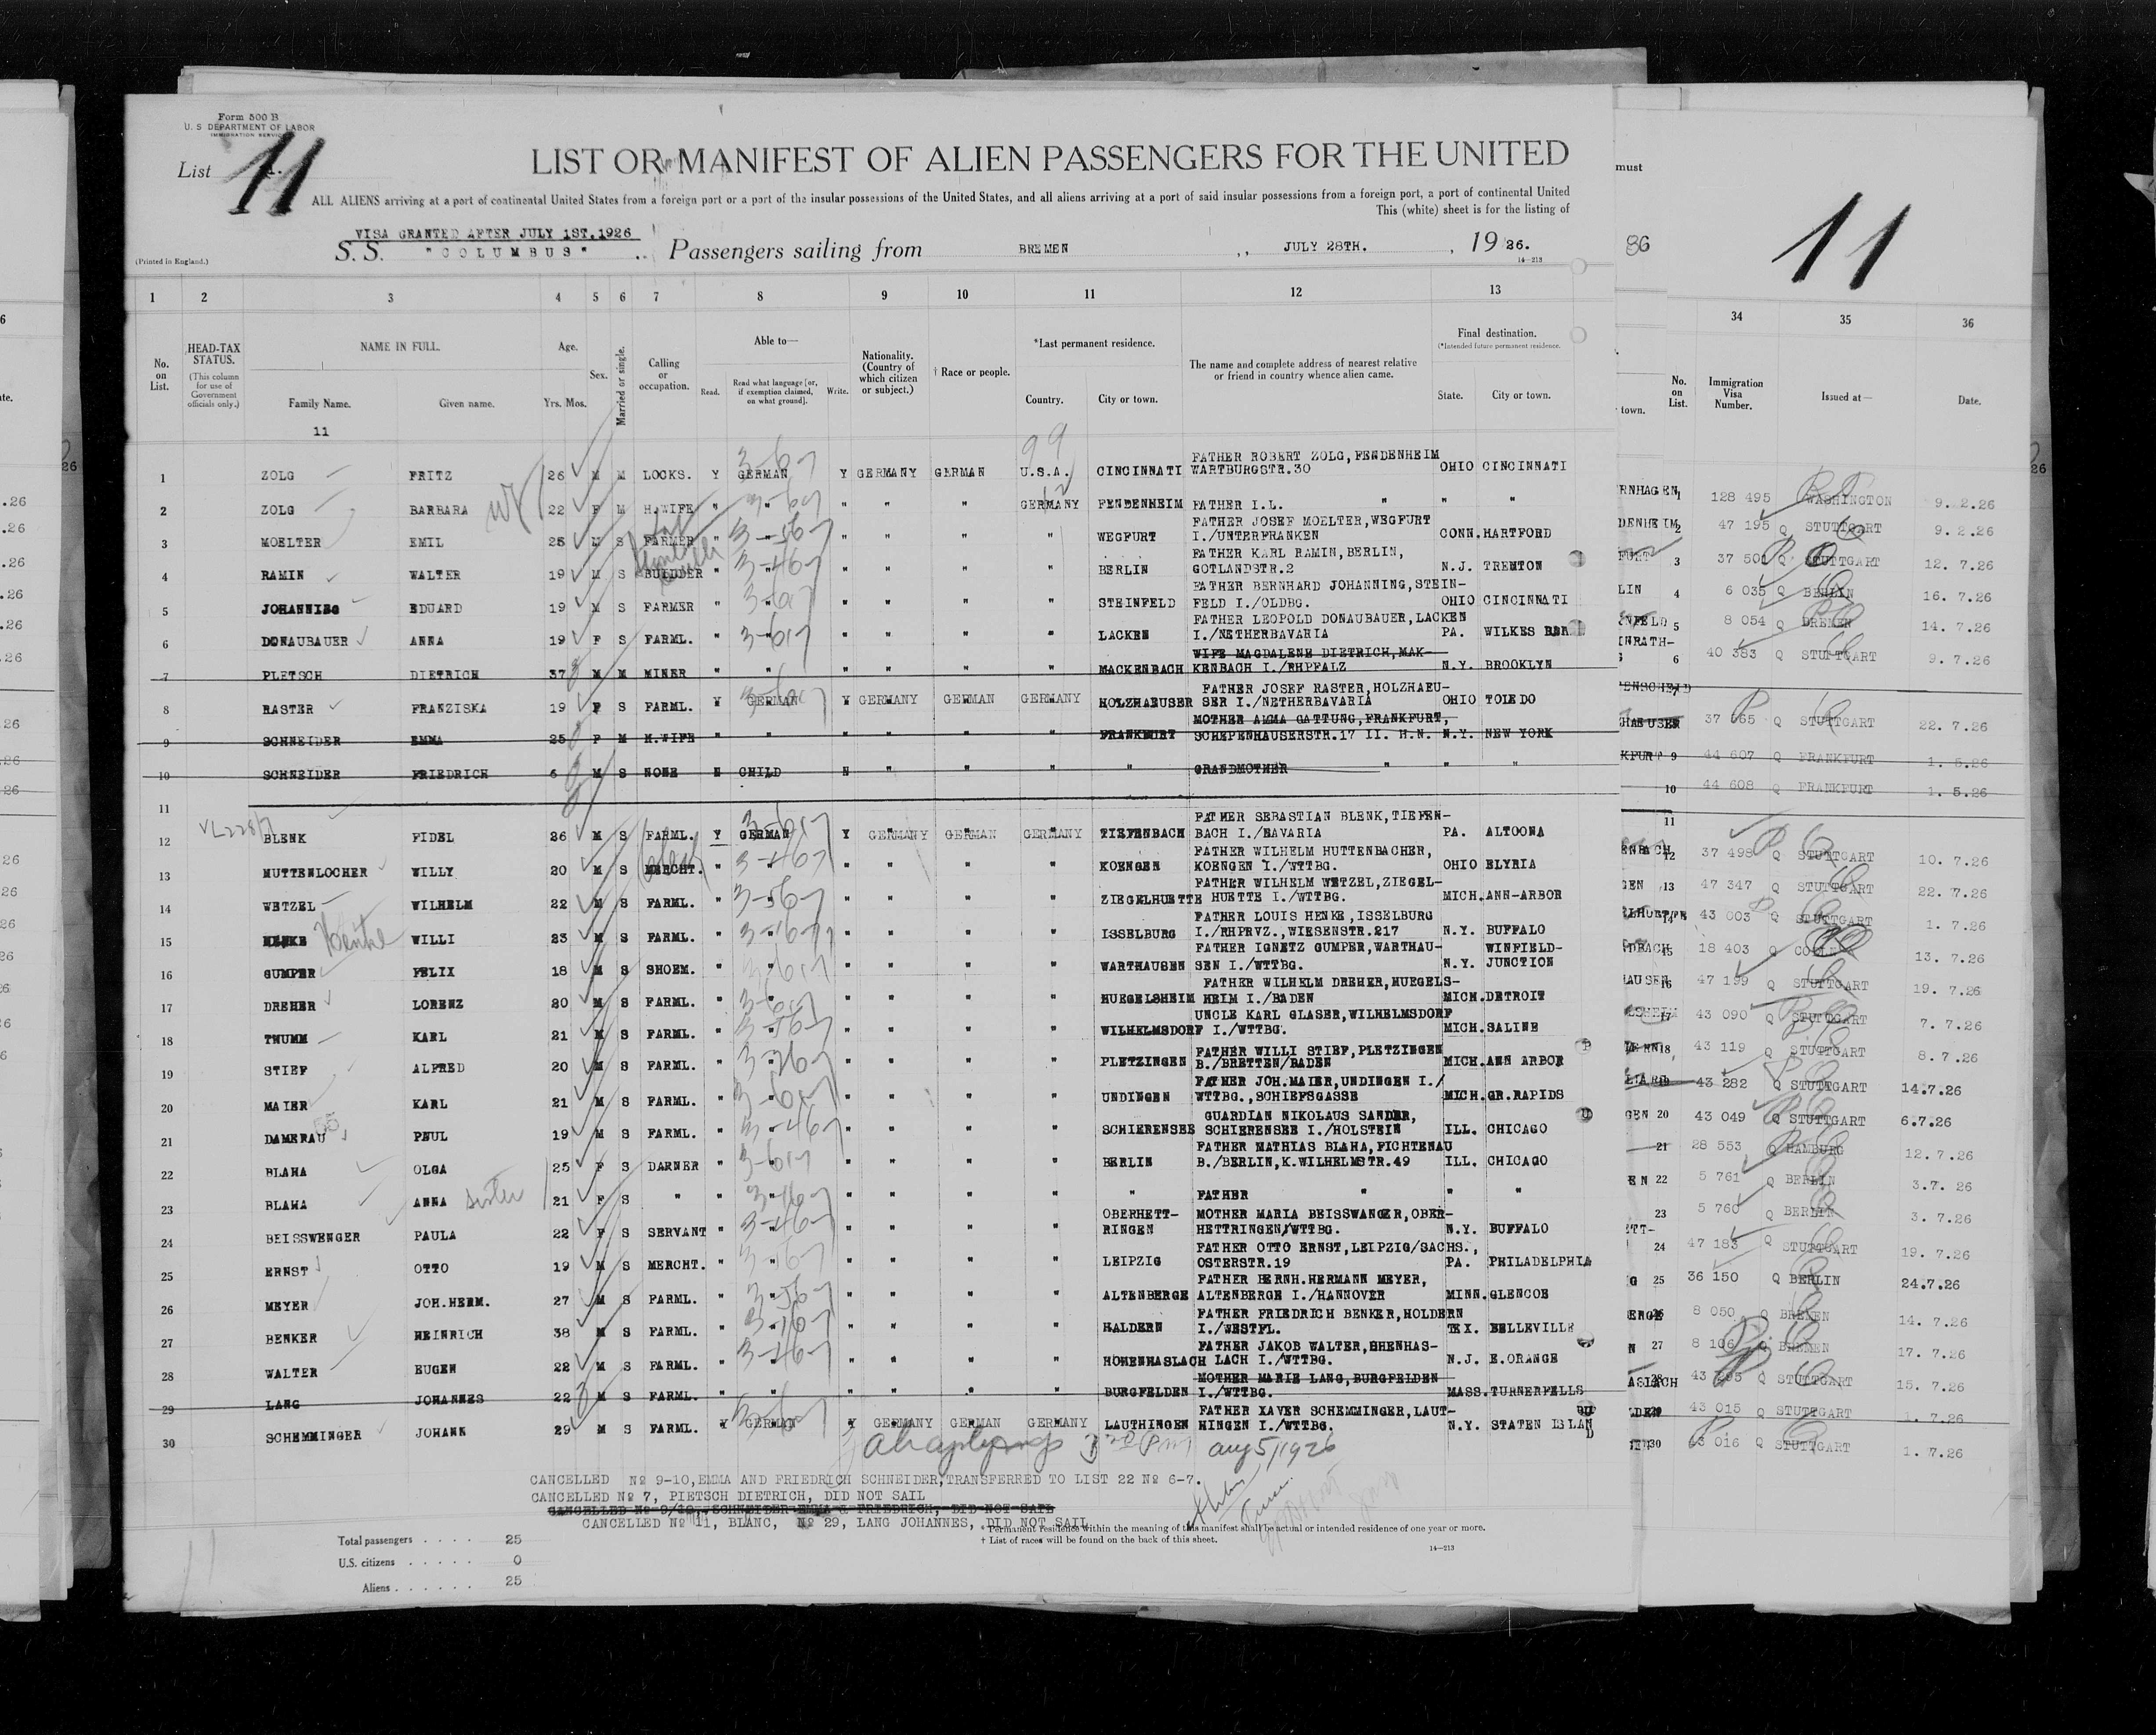 Form 500 B
U. S DEPARTMENT OF LABOR
IMMIGRATION SERVICE
List 11
LIST OR MANIFEST OF ALIEN PASSENGERS FOR THE UNITED
ALL ALIENS arriving at a port of continental United States from a foreign port or a part of the insular possessions of the United States, and all aliens arriving at a port of said insular possessions from a foreign port, a port of continental United
This (white) sheet is for the listing of
VISA GRANTED AFTER JULY 1ST,1926
S. S. "COLUMBUS" Passengers sailing from BREMEN ,, JULY 28TH. , 19 26.
(Printed in England.)
14—213
1 2 3 4 5 6 7 8 9 10 11 12 13
No. on List.
HEAD-TAX STATUS.
(This column for use of Government officials only.)
NAME IN FULL.
Family Name. Given name.
Age.
Yrs. Mos.
Sex.
Married or single.
Calling or occupation.
Able to—
Read. Read what language [or, if exemption claimed, on what ground]. Write.
Nationality. (Country of which citizen or subject.)
† Race or people.
*Last permanent residence.
Country. City or town.
The name and complete address of nearest relative or friend in country whence alien came.
Final destination.
(*Intended future permanent residence.
State. City or town.
11
99
1 ZOLG FRITZ 26 M M LOCKS. Y GERMAN Y GERMANY GERMAN U.S.A. CINCINNATI FATHER ROBERT ZOLG,FENDENHEIM WARTBURGSTR.30 OHIO CINCINNATI
2 ZOLG BARBARA 22 F M H.WIFE " " " " " GERMANY FENDENHEIM FATHER I.L. " " "
3 MOELTER EMIL 25 M S FARMER " " " " " " WEGFURT FATHER JOSEF MOELTER,WEGFURT I./UNTERFRANKEN CONN. HARTFORD
4 RAMIN WALTER 19 M S BUILDER " " " " " " BERLIN FATHER KARL RAMIN,BERLIN, GOTLANDSTR.2 N.J. TRENTON
5 JOHANNING EDUARD 19 M S FARMER " " " " " " STEINFELD FATHER BERNHARD JOHANNING,STEIN- FELD I./OLDBG. OHIO CINCINNATI
6 DONAUBAUER ANNA 19 F S FARML. " " " " " " LACKEN FATHER LEOPOLD DONAUBAUER,LACKEN I./NETHERBAVARIA PA. WILKES BAR
7 PLETSCH DIETRICH 37 M M MINER " " " " " " MACKENBACH WIFE MAGDALENE DIETRICH,MAK- KENBACH I./RHPFALZ N.Y. BROOKLYN
8 RASTER FRANZISKA 19 F S FARML. Y GERMAN Y GERMANY GERMAN GERMANY HOLZHAEUSER FATHER JOSEF RASTER,HOLZHAEU- SER I./NETHERBAVARIA OHIO TOLEDO
9 SCHNEIDER EMMA 25 F M H.WIFE " " " " " " FRANKFURT MOTHER ANNA GATTUNG,FRANKFURT, SCHEPENHAUSERSTR.17 II. H.N. N.Y. NEW YORK
10 SCHNEIDER FRIEDRICH 6 M S NONE N CHILD N " " " " GRANDMOTHER " " "
11
12 BLENK FIDEL 26 M S FARML. Y GERMAN Y GERMANY GERMAN GERMANY TIEFENBACH FATHER SEBASTIAN BLENK,TIEFEN- BACH I./BAVARIA PA. ALTOONA
13 HUTTENLOCHER WILLY 20 M S MERCHT. " " " " " " KOENGEN FATHER WILHELM HUTTENBACHER, KOENGEN I./WTTBG. OHIO ELYRIA
14 WETZEL WILHELM 22 M S FARML. " " " " " " ZIEGELHUETTE FATHER WILHELM WETZEL,ZIEGEL- HUETTE I./WTTBG. MICH. ANN-ARBOR
15 HENKE Henke WILLI 23 M S FARML. " " " " " " ISSELBURG FATHER LOUIS HENKE,ISSELBURG I./RHPRVZ.,WIESENSTR.217 N.Y. BUFFALO
16 GUMPER FELIX 18 M S SHOEM. " " " " " " WARTHAUSEN FATHER IGNETZ GUMPER,WARTHAU- SEN I./WTTBG. N.Y. WINFIELD- JUNCTION
17 DREHER LORENZ 20 M S FARML. " " " " " " HUEGELSHEIM FATHER WILHELM DREHER,HUEGELS- HEIM I./BADEN MICH. DETROIT
18 THUMM KARL 21 M S FARML. " " " " " " WILHELMSDORF UNCLE KARL GLASER,WILHELMSDORF I./WTTBG. MICH. SALINE
19 STIEF ALFRED 20 M S FARML. " " " " " " PLETZINGEN FATHER WILLI STIEF,PLETZINGEN B./BRETTEN/BADEN MICH. ANN ARBOR
20 MAIER KARL 21 M S FARML. " " " " " " UNDINGEN FATHER JOH.MAIER,UNDINGEN I./ WTTBG.,SCHIEFSGASSE MICH. GR.RAPIDS
21 DAMERAU PAUL 19 M S FARML. " " " " " " SCHIERENSEE GUARDIAN NIKOLAUS SANDER, SCHIERENSEE I./HOLSTEIN ILL. CHICAGO
22 BLAHA OLGA 25 F S DARNER " " " " " " BERLIN FATHER MATHIAS BLAHA,FICHTENAU B./BERLIN,K.WILHELMSTR.49 ILL. CHICAGO
23 BLAHA ANNA sister 21 F S " " " " " " " " FATHER " " "
24 BEISSWENGER PAULA 22 F S SERVANT " " " " " " OBERHETT- RINGEN MOTHER MARIA BEISSWANGER,OBER- HETTRINGEN/WTTBG. N.Y. BUFFALO
25 ERNST OTTO 19 M S MERCHT. " " " " " " LEIPZIG FATHER OTTO ERNST,LEIPZIG/SACHS., OSTERSTR.19 PA. PHILADELPHIA
26 MEYER JOH.HERM. 27 M S FARML. " " " " " " ALTENBERGE FATHER BERNH.HERMANN MEYER, ALTENBERGE I./HANNOVER MINN. GLENCOE
27 BENKER HEINRICH 38 M S FARML. " " " " " " HALDERN FATHER FRIEDRICH BENKER,HOLDERN I./WESTFL. TEX. BELLEVILLE
28 WALTER EUGEN 22 M S FARML. " " " " " " HOHENHASLACH FATHER JAKOB WALTER,EHENHAS- LACH I./WTTBG. N.J. E.ORANGE
29 LANG JOHANNES 22 M S FARML. " " " " " " BURGFELDEN MOTHER MARIE LANG,BURGFELDEN I./WTTBG. MASS. TURNERFELLS
30 SCHEMMINGER JOHANN 29 M S FARML. Y GERMAN Y GERMANY GERMAN GERMANY LAUTHINGEN FATHER XAVER SCHEMMINGER,LAUT- HINGEN I./WTTBG. N.Y. STATEN ISLAND
Aug 5/1926
CANCELLED № 9-10,EMMA AND FRIEDRICH SCHNEIDER,TRANSFERRED TO LIST 22 № 6-7.
CANCELLED № 7, PIETSCH DIETRICH, DID NOT SAIL
CANCELLED № 9/10, SCHNEIDER EMMA & FRIEDRICH, DID NOT SAIL
CANCELLED № 11, BLANC, № 29, LANG JOHANNES, DID NOT SAIL
* Permanent residence within the meaning of this manifest shall be actual or intended residence of one year or more.
† List of races will be found on the back of this sheet.
14—213
Total passengers . . . . 25
U.S. citizens . . . . . 0
Aliens . . . . . . 25
must
11
86
34 35 36
town.
No. on List.
Immigration Visa Number.
Issued at—
Date.
1 128 495 WASHINGTON 9. 2.26
2 47 195 Q STUTTGART 9. 2.26
3 37 501 Q STUTTGART 12. 7.26
4 6 035 Q BERLIN 16. 7.26
5 8 054 Q BREMEN 14. 7.26
6 40 383 Q STUTTGART 9. 7.26
7
37 665 Q STUTTGART 22. 7.26
9 44 607 Q FRANKFURT 1. 5.26
10 44 608 Q FRANKFURT 1. 5.26
11
12 37 498 Q STUTTGART 10. 7.26
13 47 347 Q STUTTGART 22. 7.26
14 43 003 Q STUTTGART 1. 7.26
15 18 403 Q 13. 7.26
16 47 199 Q STUTTGART 19. 7.26
17 43 090 Q STUTTGART 7. 7.26
18 43 119 Q STUTTGART 8. 7.26
19 43 282 Q STUTTGART 14.7.26
20 43 049 Q STUTTGART 6.7.26
21 28 553 Q HAMBURG 12. 7.26
22 5 761 Q BERLIN 3.7. 26
23 5 760 Q BERLIN 3. 7.26
24 47 183 Q STUTTGART 19. 7.26
25 36 150 Q BERLIN 24.7.26
26 8 050 Q BREMEN 14. 7.26
27 8 106 Q BREMEN 17. 7.26
28 43 Q STUTTGART 15. 7.26
29 43 015 Q STUTTGART 1. 7.26
30 43 016 Q STUTTGART 1. 7.26